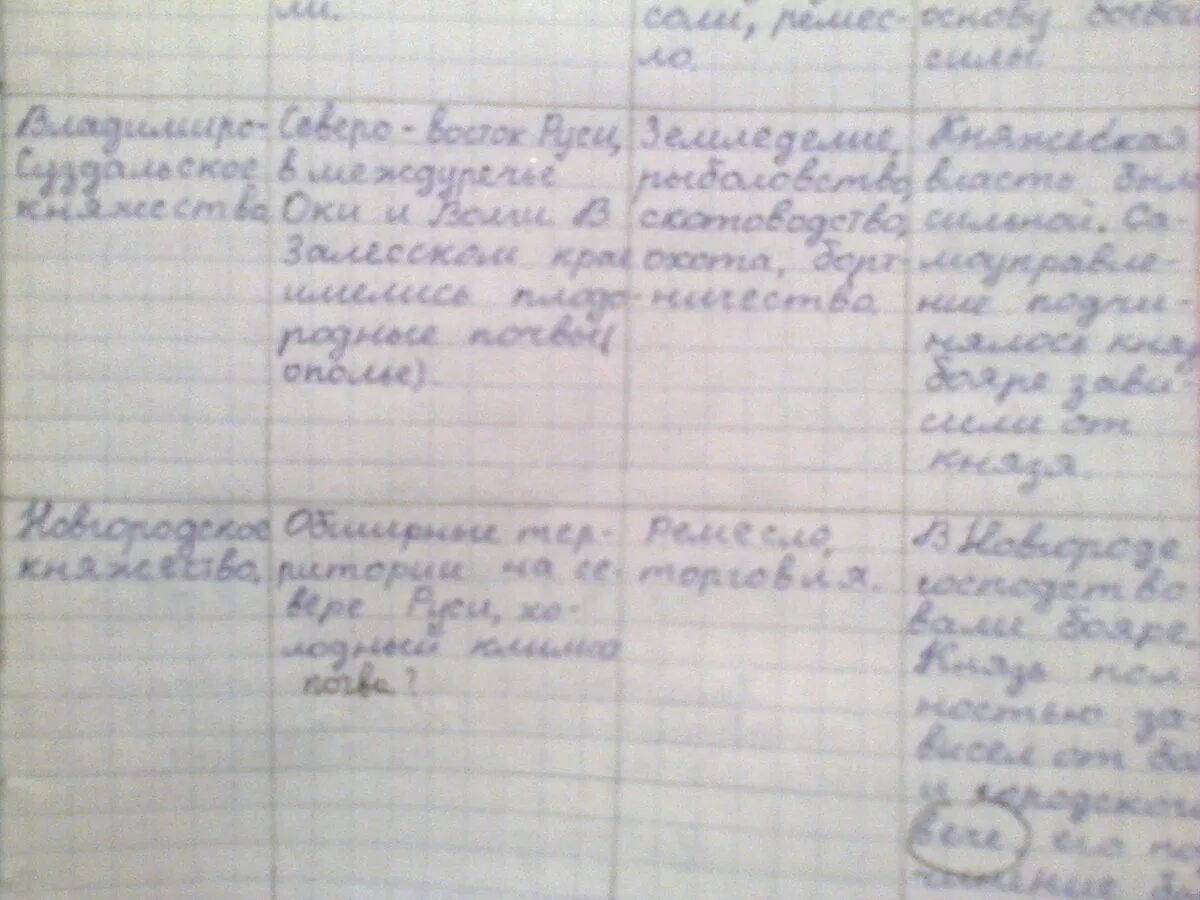 ли.
соли, ремес-
ло.
основу боевой
силы.
Владимиро-
Суздальское
княжество
Северо-восток Руси,
в междуречье
Оки и Волги. В
Залесском крае
имелись плодо-
родные почвы(
ополье).
Земледелие,
рыболовство,
скотоводство,
охота, борт-
ничество.
Княжеская
власть была
сильной. Са-
моуправле-
ние подчи-
нялось князю
бояре зави-
сили от
князя.
Новгородское
княжество.
Обширные тер-
ритории на се-
вере Руси, хо-
лодный климат
почва?
Ремесло,
торговля.
В Новгороде
господство
вали бояре.
Князь пол-
ностью за-
висел от бо
и городского
вече, его по